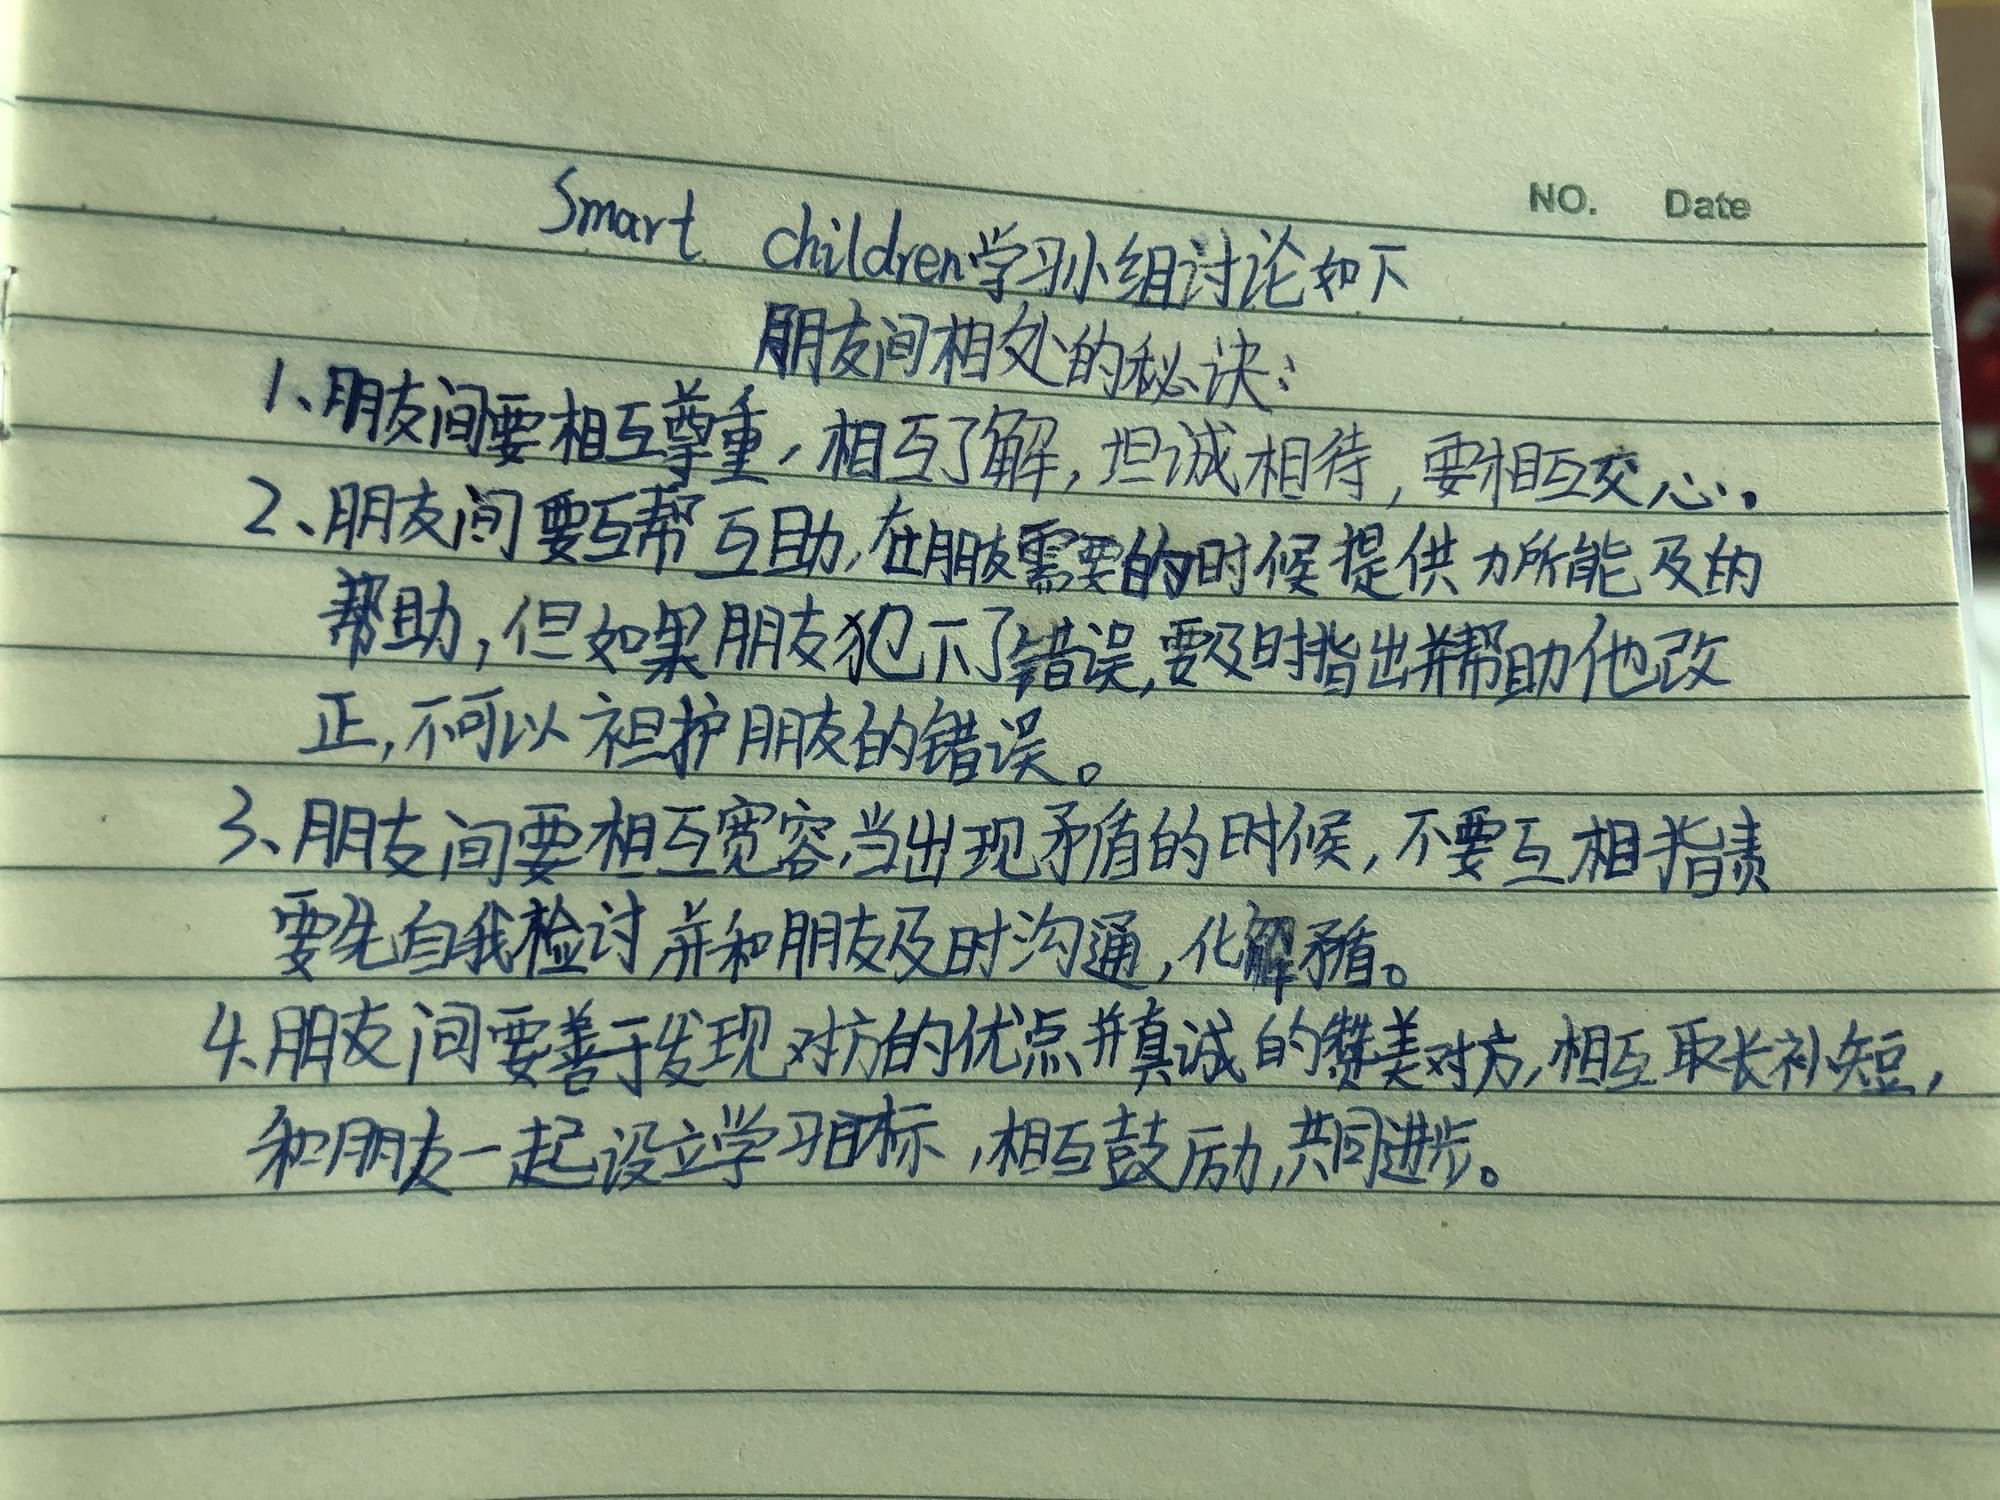 NO.    Date
Smart children学习小组讨论如下
朋友间相处的秘诀:
1、朋友间要相互尊重,相互了解,坦诚相待,要相互交心.
2、朋友间要互帮互助,在朋友需要的时候提供力所能及的
帮助,但如果朋友犯下了错误,要及时指出并帮助他改
正,不可以袒护朋友的错误。
3、朋友间要相互宽容,当出现矛盾的时候,不要互相指责
要先自我检讨并和朋友及时沟通,化解矛盾。
4、朋友间要善于发现对方的优点并真诚的赞美对方,相互取长补短,
和朋友一起设立学习目标,相互鼓励,共同进步。